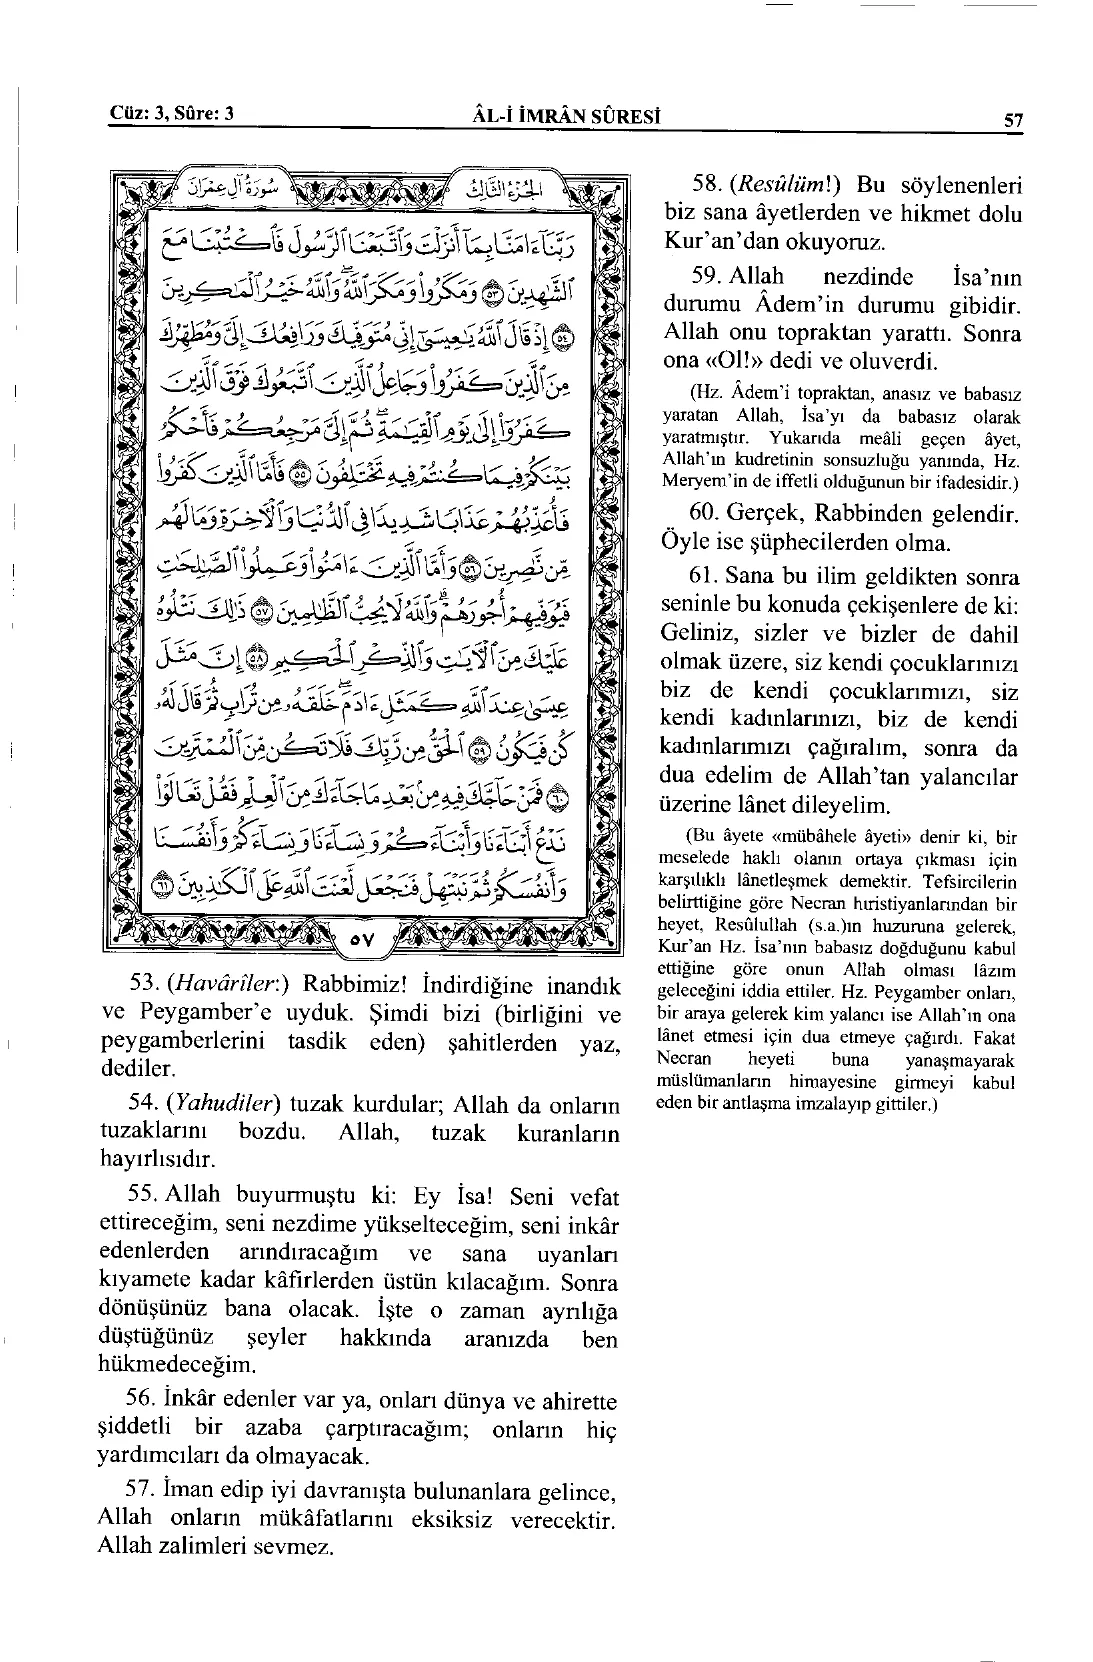 Cüz: 3, Sûre: 3
ÂL-İ İMRÂN SÛRESİ
57
سُورَةُ آلِ عِمْرَانَ
الجُزْءُ الثَّالِثُ
رَبَّنَآ ءَامَنَّا بِمَآ أَنزَلْتَ وَٱتَّبَعْنَا ٱلرَّسُولَ فَٱكْتُبْنَا مَعَ
ٱلشَّٰهِدِينَ ٥٣ وَمَكَرُوا۟ وَمَكَرَ ٱللَّهُ وَٱللَّهُ خَيْرُ ٱلْمَٰكِرِينَ
٥٤ إِذْ قَالَ ٱللَّهُ يَٰعِيسَىٰٓ إِنِّى مُتَوَفِّيكَ وَرَافِعُكَ إِلَىَّ وَمُطَهِّرُكَ
مِنَ ٱلَّذِينَ كَفَرُوا۟ وَجَاعِلُ ٱلَّذِينَ ٱتَّبَعُوكَ فَوْقَ ٱلَّذِينَ
كَفَرُوٓا۟ إِلَىٰ يَوْمِ ٱلْقِيَٰمَةِ ثُمَّ إِلَىَّ مَرْجِعُكُمْ فَأَحْكُمُ
بَيْنَكُمْ فِيمَا كُنتُمْ فِيهِ تَخْتَلِفُونَ ٥٥ فَأَمَّا ٱلَّذِينَ كَفَرُوا۟
فَأُعَذِّبُهُمْ عَذَابًا شَدِيدًا فِى ٱلدُّنْيَا وَٱلْءَاخِرَةِ وَمَا لَهُم
مِّن نَّٰصِرِينَ ٥٦ وَأَمَّا ٱلَّذِينَ ءَامَنُوا۟ وَعَمِلُوا۟ ٱلصَّٰلِحَٰتِ
فَيُوَفِّيهِمْ أُجُورَهُمْ وَٱللَّهُ لَا يُحِبُّ ٱلظَّٰلِمِينَ ٥٧ ذَٰلِكَ نَتْلُوهُ
عَلَيْكَ مِنَ ٱلْءَايَٰتِ وَٱلذِّكْرِ ٱلْحَكِيمِ ٥٨ إِنَّ مَثَلَ
عِيسَىٰ عِندَ ٱللَّهِ كَمَثَلِ ءَادَمَ خَلَقَهُۥ مِن تُرَابٍ ثُمَّ قَالَ لَهُۥ
كُن فَيَكُونُ ٥٩ ٱلْحَقُّ مِن رَّبِّكَ فَلَا تَكُن مِّنَ ٱلْمُمْتَرِينَ
٦٠ فَمَنْ حَآجَّكَ فِيهِ مِنۢ بَعْدِ مَا جَآءَكَ مِنَ ٱلْعِلْمِ فَقُلْ تَعَالَوْا۟
نَدْعُ أَبْنَآءَنَا وَأَبْنَآءَكُمْ وَنِسَآءَنَا وَنِسَآءَكُمْ وَأَنفُسَنَا
وَأَنفُسَكُمْ ثُمَّ نَبْتَهِلْ فَنَجْعَل لَّعْنَتَ ٱللَّهِ عَلَى ٱلْكَٰذِبِينَ ٦١
٥٧
53. (Havârîler:) Rabbimiz! İndirdiğine inandık
ve Peygamber'e uyduk. Şimdi bizi (birliğini ve
peygamberlerini tasdik eden) şahitlerden yaz,
dediler.
54. (Yahudiler) tuzak kurdular; Allah da onların
tuzaklarını bozdu. Allah, tuzak kuranların
hayırlısıdır.
55. Allah buyurmuştu ki: Ey İsa! Seni vefat
ettireceğim, seni nezdime yükselteceğim, seni inkâr
edenlerden arındıracağım ve sana uyanları
kıyamete kadar kâfirlerden üstün kılacağım. Sonra
dönüşünüz bana olacak. İşte o zaman ayrılığa
düştüğünüz şeyler hakkında aranızda ben
hükmedeceğim.
56. İnkâr edenler var ya, onları dünya ve ahirette
şiddetli bir azaba çarptıracağım; onların hiç
yardımcıları da olmayacak.
57. İman edip iyi davranışta bulunanlara gelince,
Allah onların mükâfatlarını eksiksiz verecektir.
Allah zalimleri sevmez.
58. (Resûlüm!) Bu söylenenleri
biz sana âyetlerden ve hikmet dolu
Kur'an'dan okuyoruz.
59. Allah nezdinde İsa'nın
durumu Âdem'in durumu gibidir.
Allah onu topraktan yarattı. Sonra
ona «Ol!» dedi ve oluverdi.
(Hz. Âdem'i topraktan, anasız ve babasız
yaratan Allah, İsa'yı da babasız olarak
yaratmıştır. Yukarıda meâli geçen âyet,
Allah'ın kudretinin sonsuzluğu yanında, Hz.
Meryem'in de iffetli olduğunun bir ifadesidir.)
60. Gerçek, Rabbinden gelendir.
Öyle ise şüphecilerden olma.
61. Sana bu ilim geldikten sonra
seninle bu konuda çekişenlere de ki:
Geliniz, sizler ve bizler de dahil
olmak üzere, siz kendi çocuklarınızı
biz de kendi çocuklarımızı, siz
kendi kadınlarınızı, biz de kendi
kadınlarımızı çağıralım, sonra da
dua edelim de Allah'tan yalancılar
üzerine lânet dileyelim.
(Bu âyete «mübâhele âyeti» denir ki, bir
meselede haklı olanın ortaya çıkması için
karşılıklı lânetleşmek demektir. Tefsircilerin
belirttiğine göre Necran hıristiyanlarından bir
heyet, Resûlullah (s.a.)ın huzuruna gelerek,
Kur'an Hz. İsa'nın babasız doğduğunu kabul
ettiğine göre onun Allah olması lâzım
geleceğini iddia ettiler. Hz. Peygamber onları,
bir araya gelerek kim yalancı ise Allah'ın ona
lânet etmesi için dua etmeye çağırdı. Fakat
Necran heyeti buna yanaşmayarak
müslümanların himayesine girmeyi kabul
eden bir antlaşma imzalayıp gittiler.)